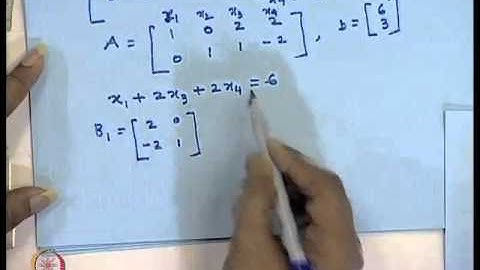 x₁ x₂ x₃ x₄
A = [ 1 0 2 2
0 1 1 -2 ], b = [ 6
3 ]
x₁ + 2x₃ + 2x₄ = 6
B₁ = [ 2 0
-2 1 ]